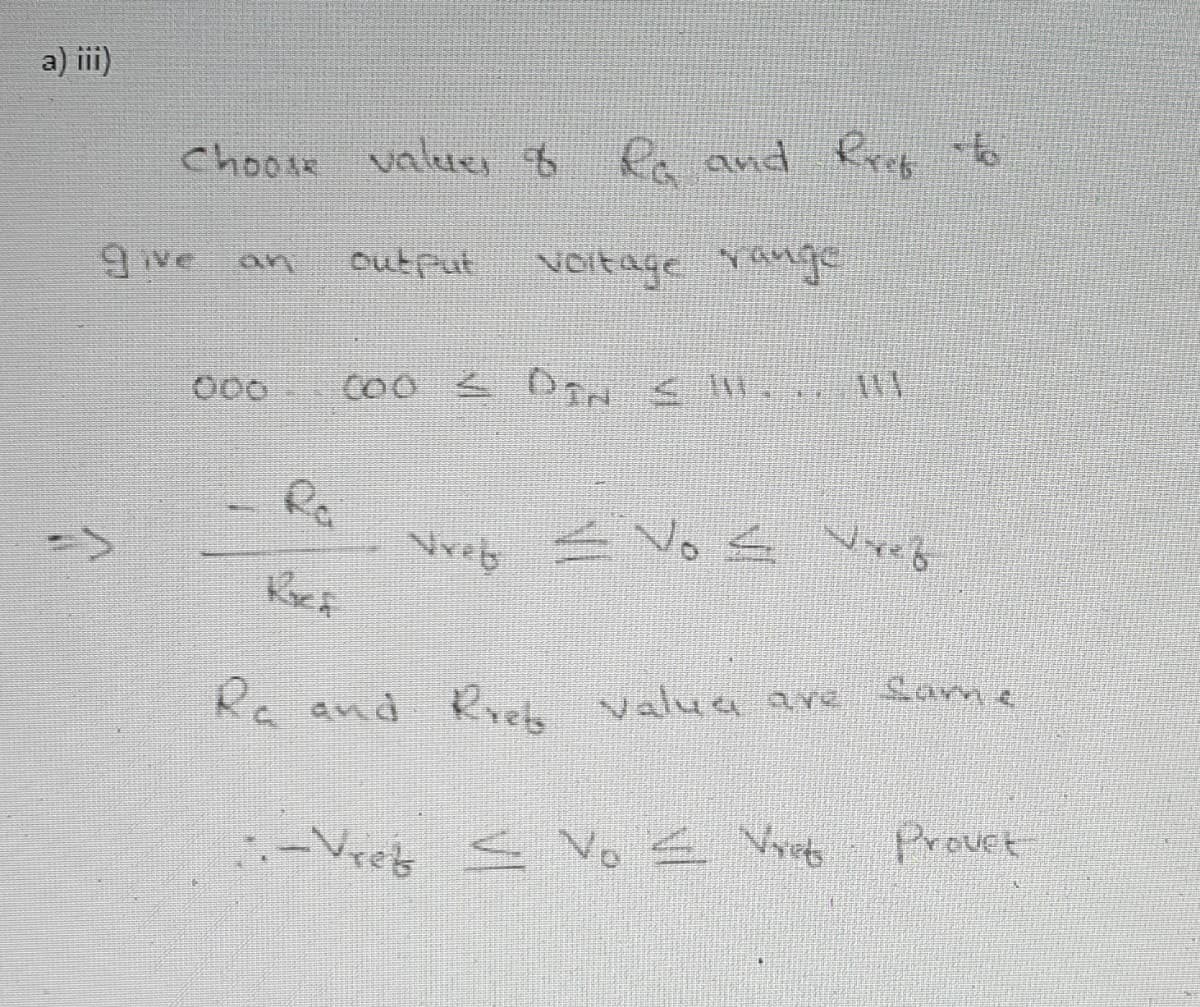 a) iii)
Choose values of RG and Rref to
give an output voltage range
000 000 ≤ DIN ≤ 111 . . . 111
=> - RG / Rref Vref ≤ Vo ≤ Vref
RG and Rref values are same
∴ -Vref ≤ Vo ≤ Vref Provet